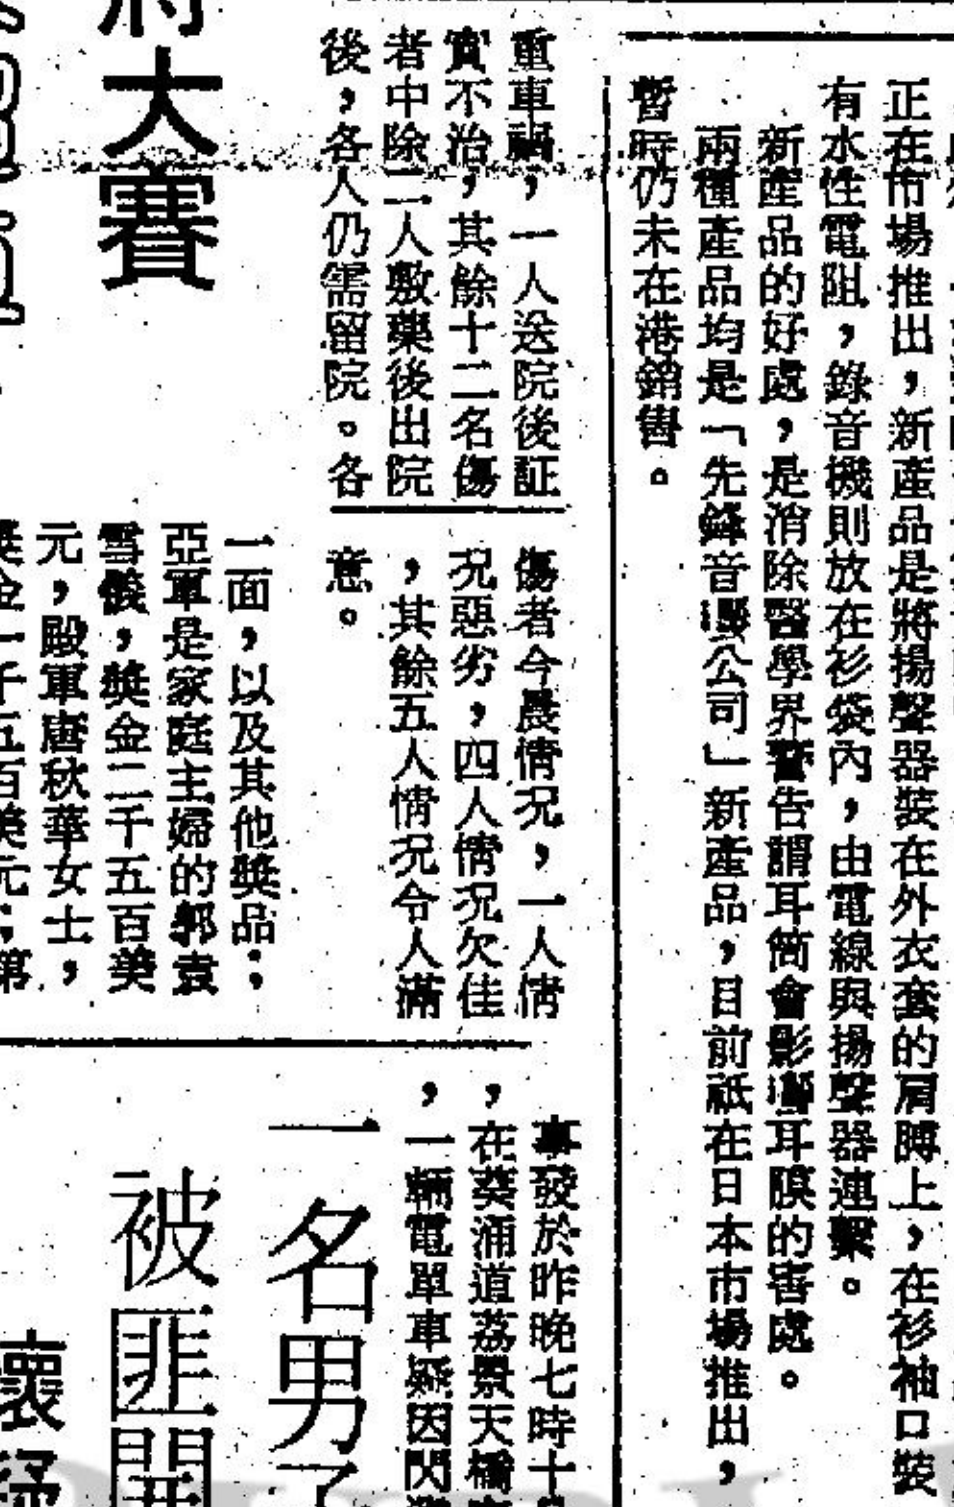 正在市場推出，新產品是將揚聲器裝在外衣套的肩膊上，在衫袖口裝
有水性電阻，錄音機則放在衫袋內，由電線與揚聲器連繫。
新產品的好處，是消除醫學界警告謂耳筒會影響耳膜的害處。
兩種產品均是「先鋒音響公司」新產品，目前祇在日本市場推出，
暫時仍未在港銷售。
重車禍，一人送院後証
實不治，其餘十二名傷
者中除二人敷藥後出院
後，各人仍需留院。各
傷者今晨情況，一人情
況惡劣，四人情況欠佳
，其餘五人情況令人滿
意。
大賽
一面，以及其他獎品；
亞軍是家庭主婦的郭袁
雪儀，獎金二千五百美
元，殿軍唐秋華女士，
獎金一千五百美元；第
事發於昨晚七時十
，在葵涌道荔景天橋
，一輛電單車疑因閃
一名男子
被匪開
壞